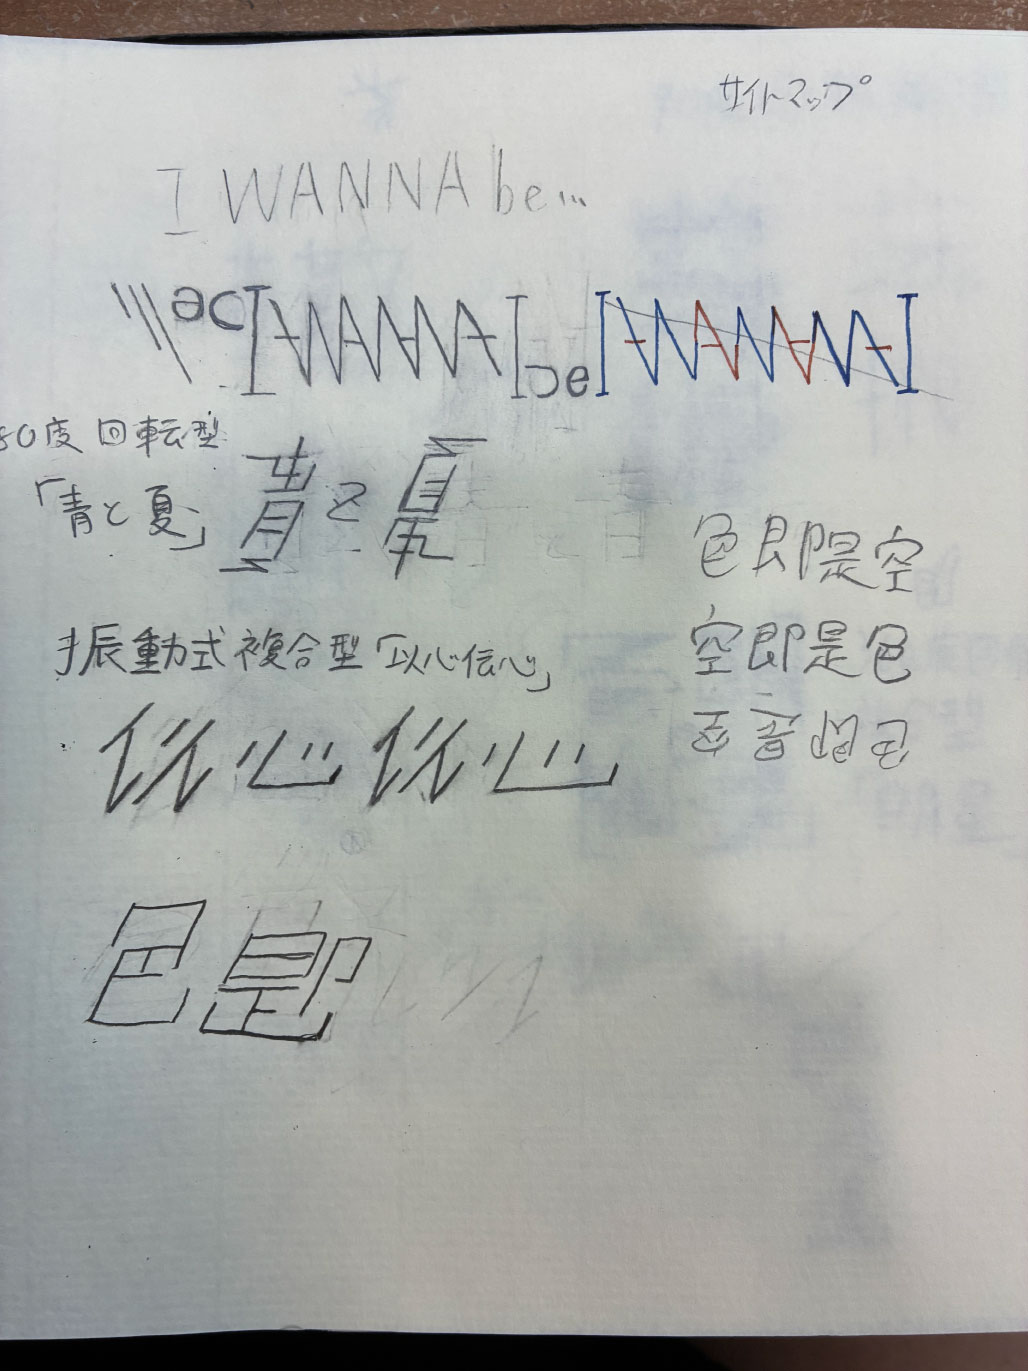 サイトマップ
I WANNA be...
I WANNA I be I WANNA I
80度回転型
「青と夏」
青と夏
色即是空
空即是色
振動式複合型「以心伝心」
以心伝心
色即是空